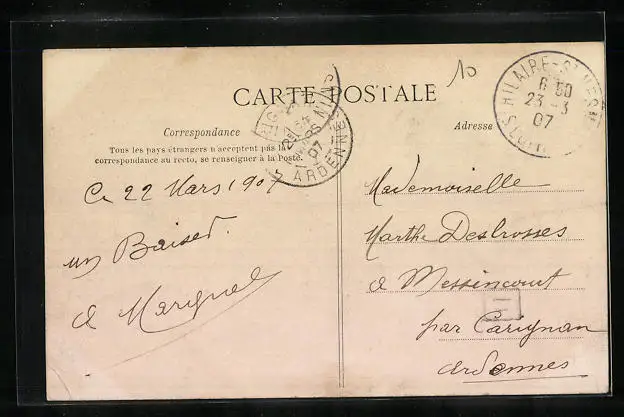 10
CARTE POSTALE
Correspondance
Tous les pays étrangers n'acceptent pas la
correspondance au recto, se renseigner à la Poste.
Ce 22 Mars 1907
un Baiser.
de
Adresse
Mademoiselle
Marthe Desbrosses
à Messincourt
par Carignan
Ardennes
ST HILAIRE-ST MESMIN
6 50
23 -3
07
07
ARDENNES